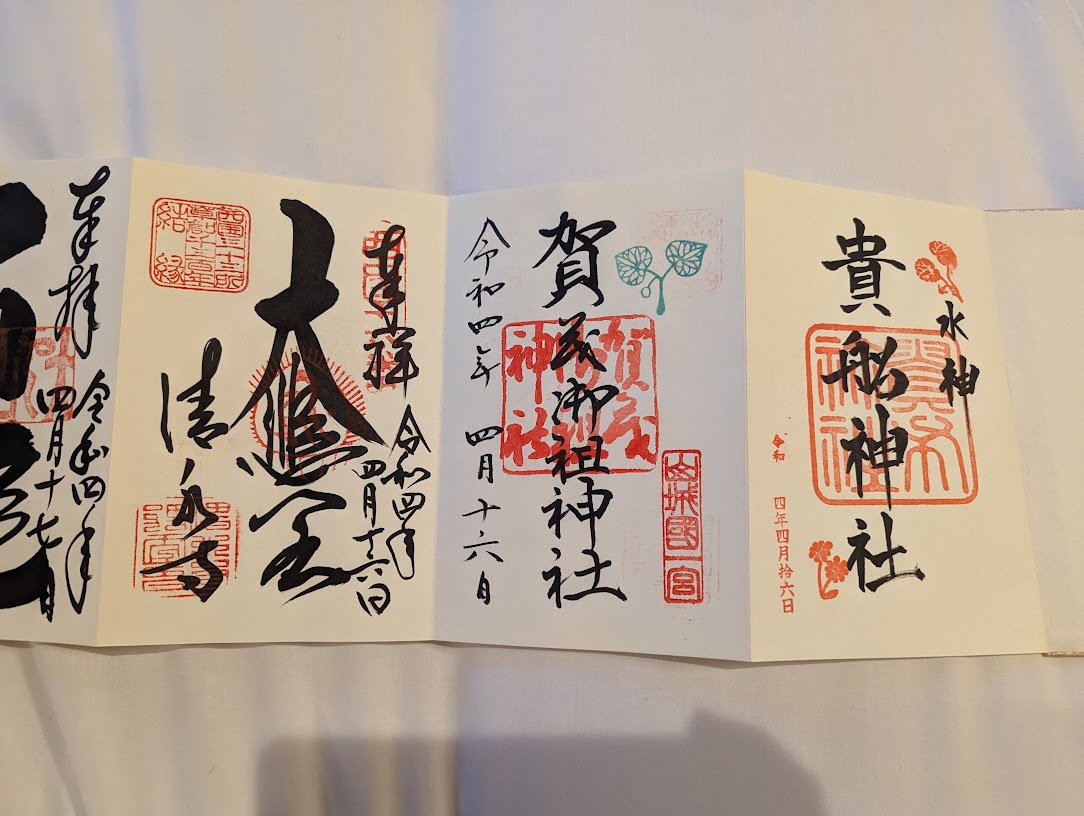 貴船神社
水神
令和
四年四月拾六日
賀茂御祖神社
賀茂
神社
山城國一宮
令和四年 四月十六日
奉拝
令和四年
四月十六日
大悲閣
清水寺
結縁
奉拝
令和四年
四月十七日